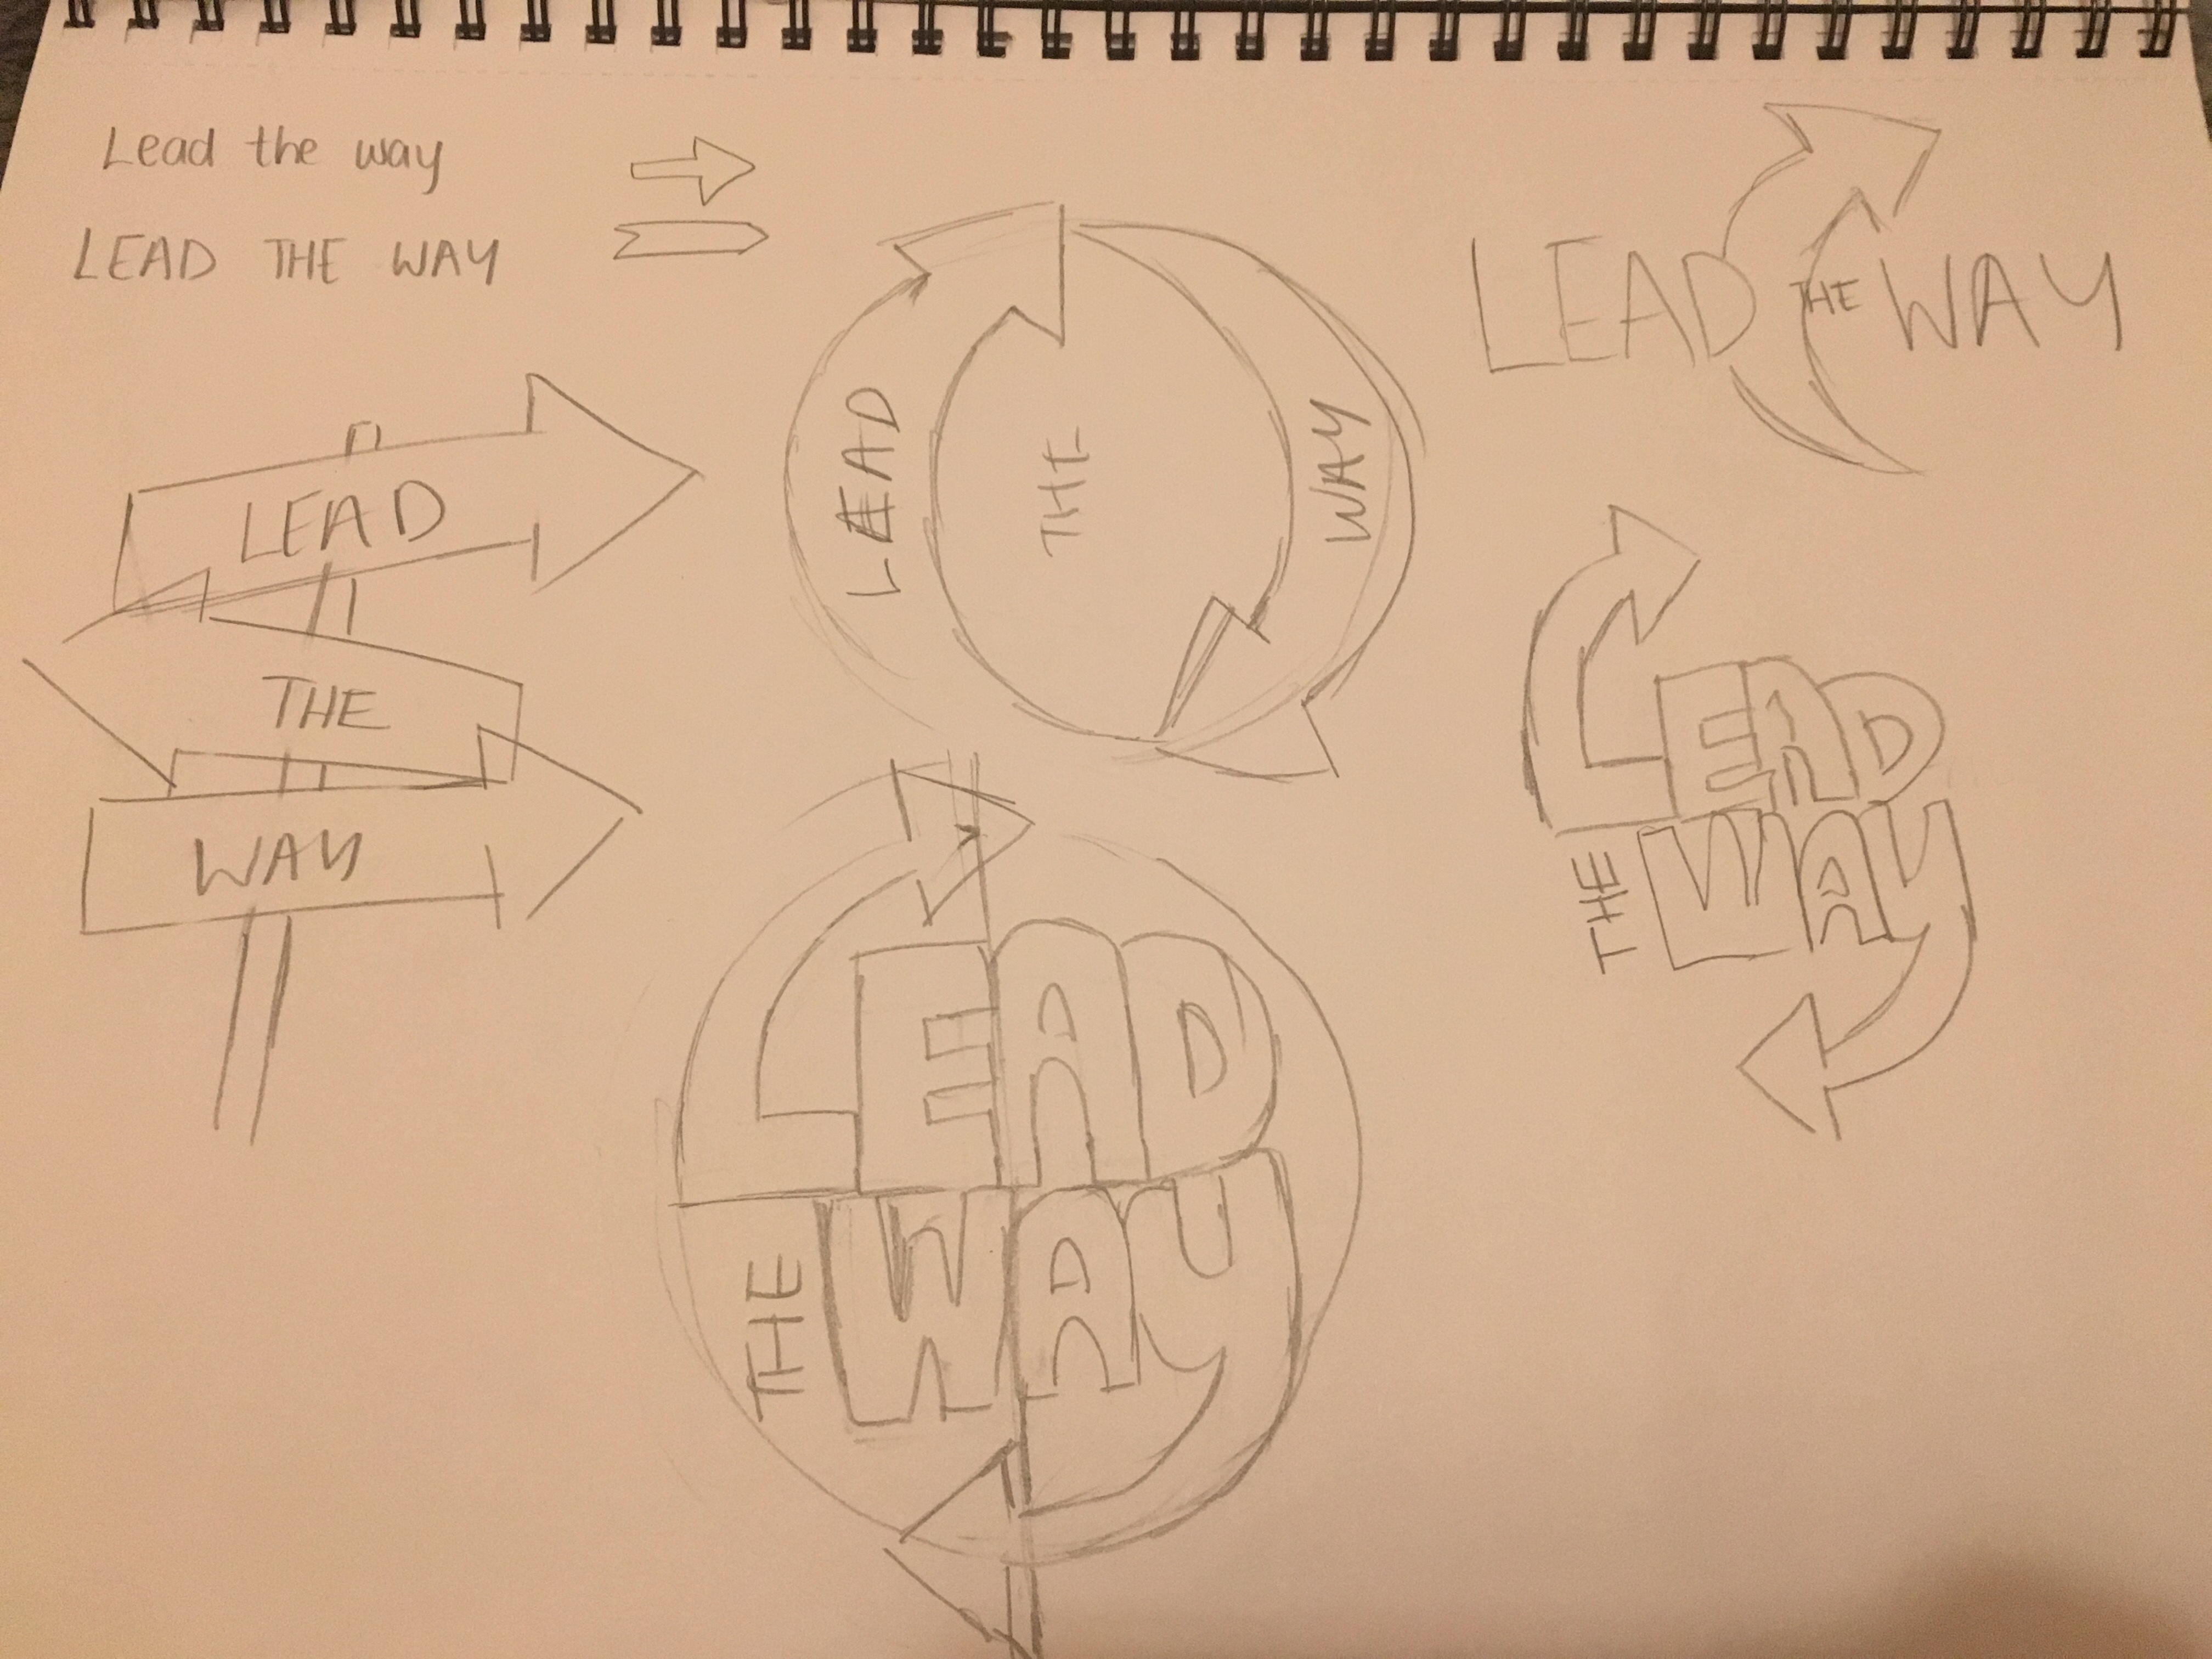 Lead the way
LEAD THE WAY
LEAD
THE
WAY
LEAD
THE
WAY
LEAD THE WAY
LEAD
THE WAY
LEAD
THE WAY